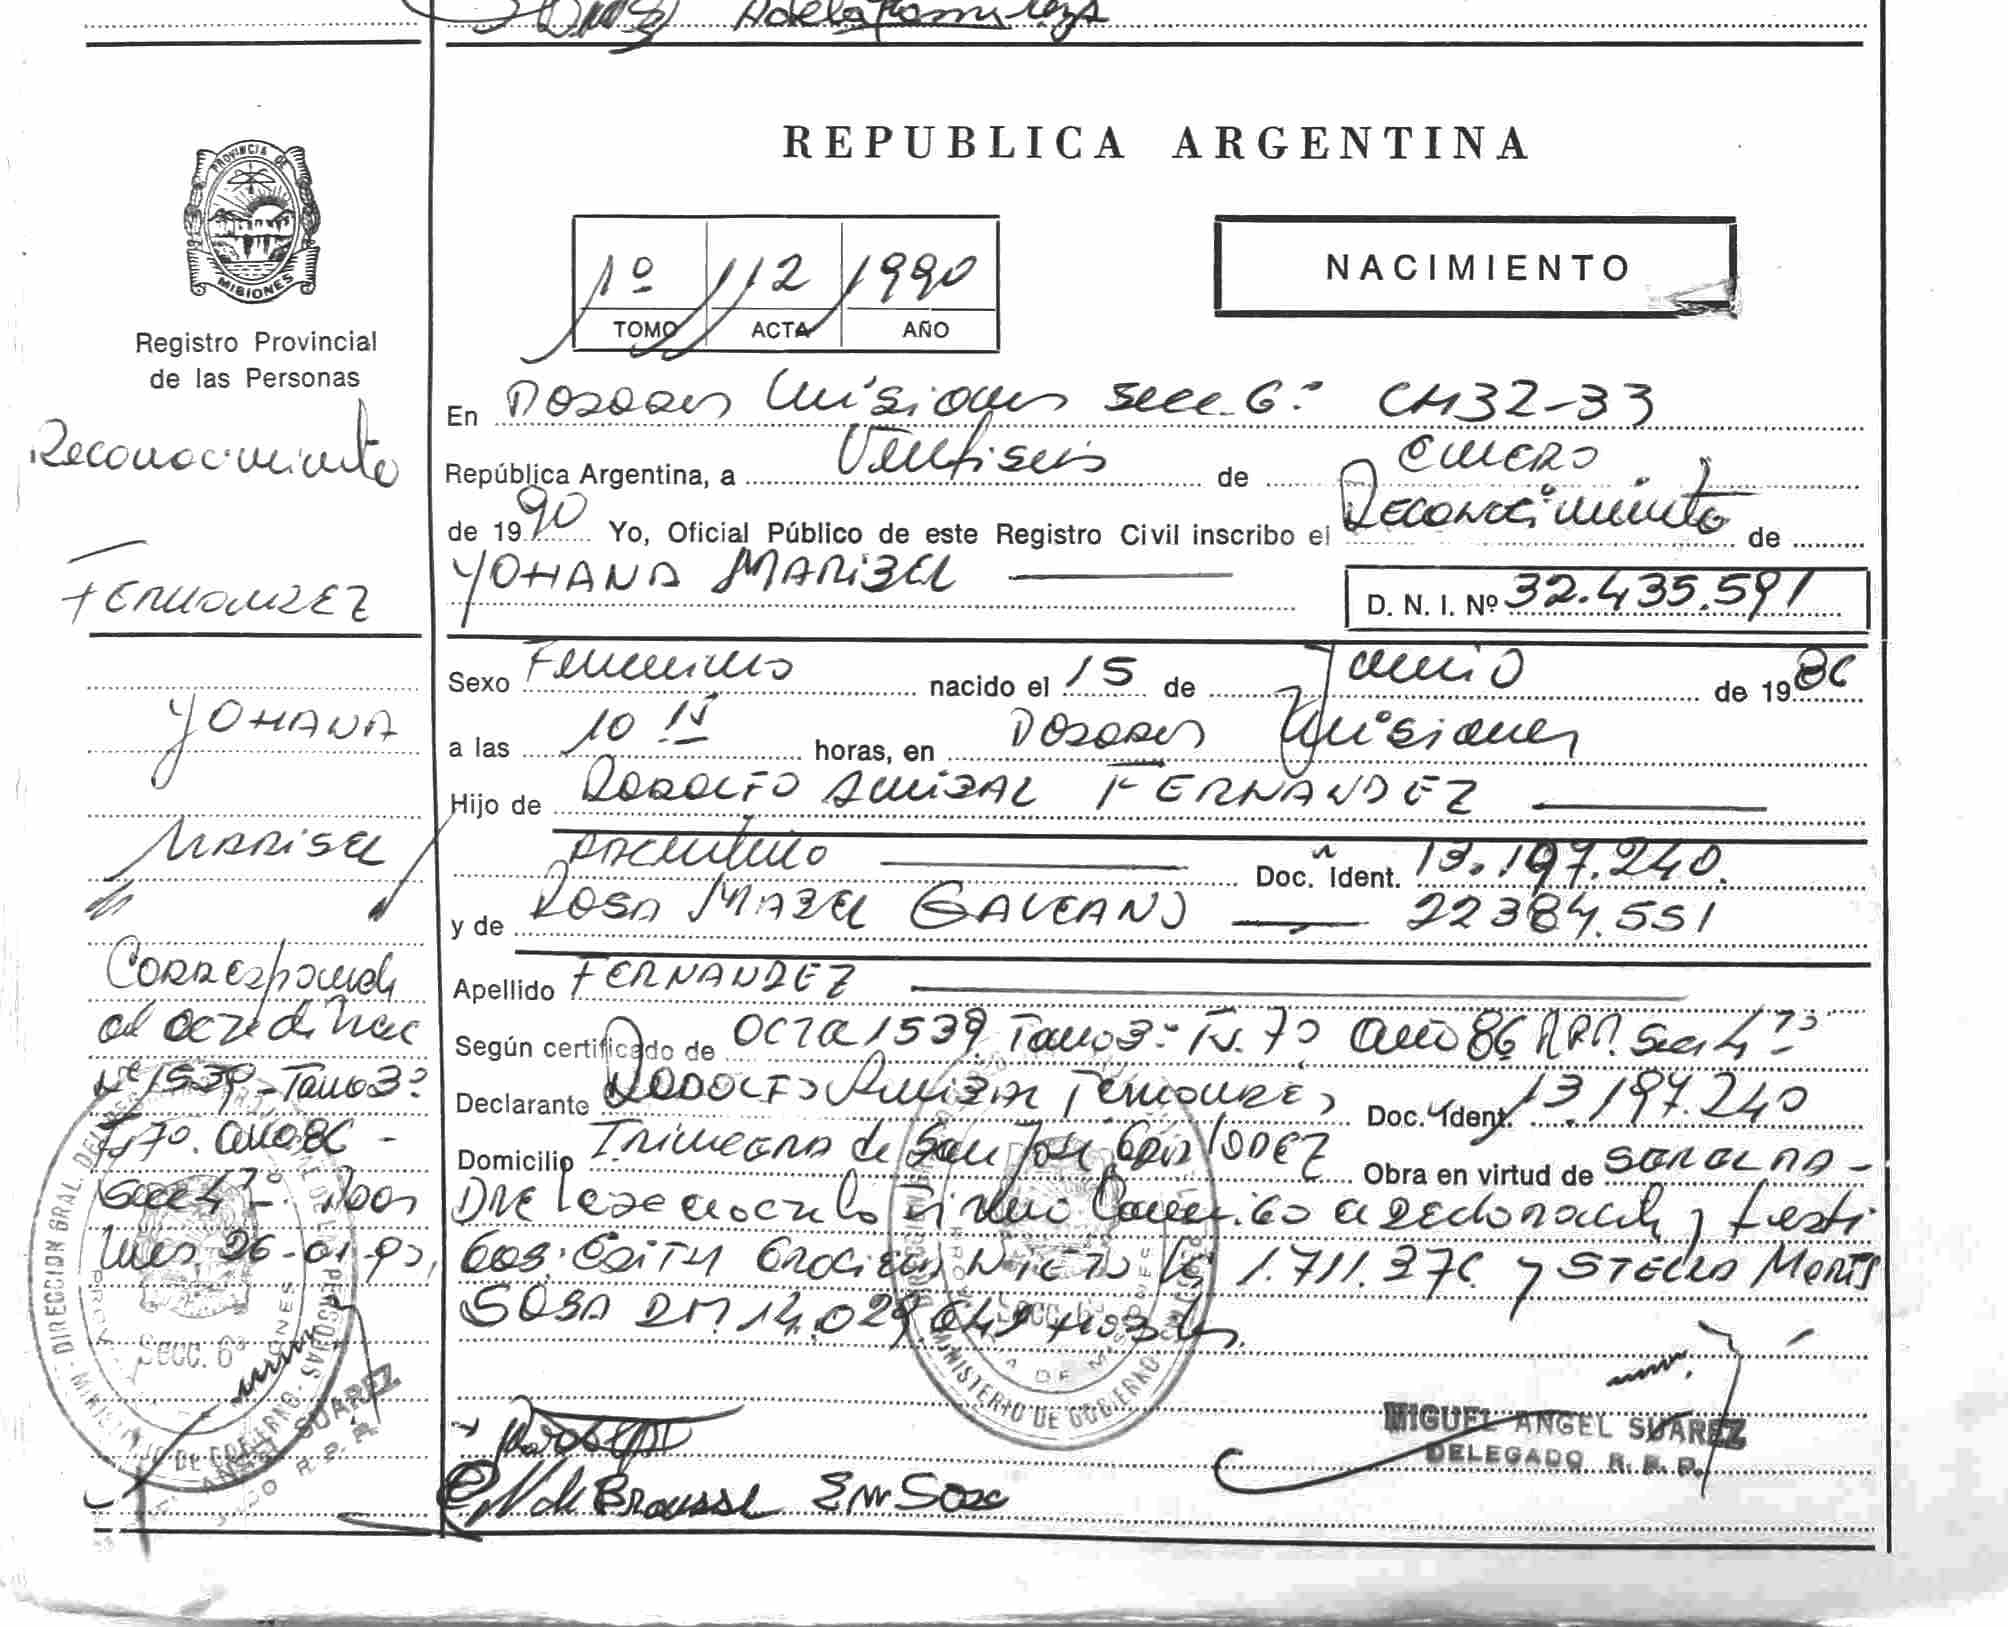 Adela Ramirez
PROVINCIA DE
MISIONES
Registro Provincial
de las Personas
Reconocimiento
FERNANDEZ
YOHANA
MARISEL
Corresponde
al acta de Nac
Nº 1539 - Tomo 3º
Fº 70. año 86 -
Secc 4º. Pos
Mnes 26-01-90,
REPUBLICA ARGENTINA
1º 112 1990
TOMO ACTA AÑO
NACIMIENTO
En Posadas Misiones Secc. 6º CM32-33
República Argentina, a Veintiseis de ENERO
de 1990 Yo, Oficial Público de este Registro Civil inscribo el Reconocimiento de
YOHANA MARIZEL D. N. I. Nº 32.435.591
Sexo Femenino nacido el 15 de Junio de 1986
a las 10 15 horas, en Posadas Misiones
Hijo de RODOLFO ANIBAL FERNANDEZ
Argentino Doc. Ident. 13.197.240.
y de ROSA MABEL GALEANO 22384.551
Apellido FERNANDEZ
Según certificado de acta 1539 Tomo 3º Fº. 70 año 86 RPP. Secc 4º
Declarante RODOLFO ANIBAL FERNANDEZ Doc. Ident. 13.197.240
Domicilio de San Jose Obra en virtud de
y testi
gos: EDITH NIETO 1.711.376 y STELLA MARIS
SOSA DNI. 14.029
DIRECCION GRAL. DEL
DE LAS PERSONAS
MINISTERIO DE GOBIERNO
Secc. 6ª
MINISTERIO DE GOBIERNO
Secc. 6ª
DE MISIONES
ANGEL SUAREZ
R. P. P.
MIGUEL ANGEL SUAREZ
DELEGADO R. P. P.
de Brousse Sosa